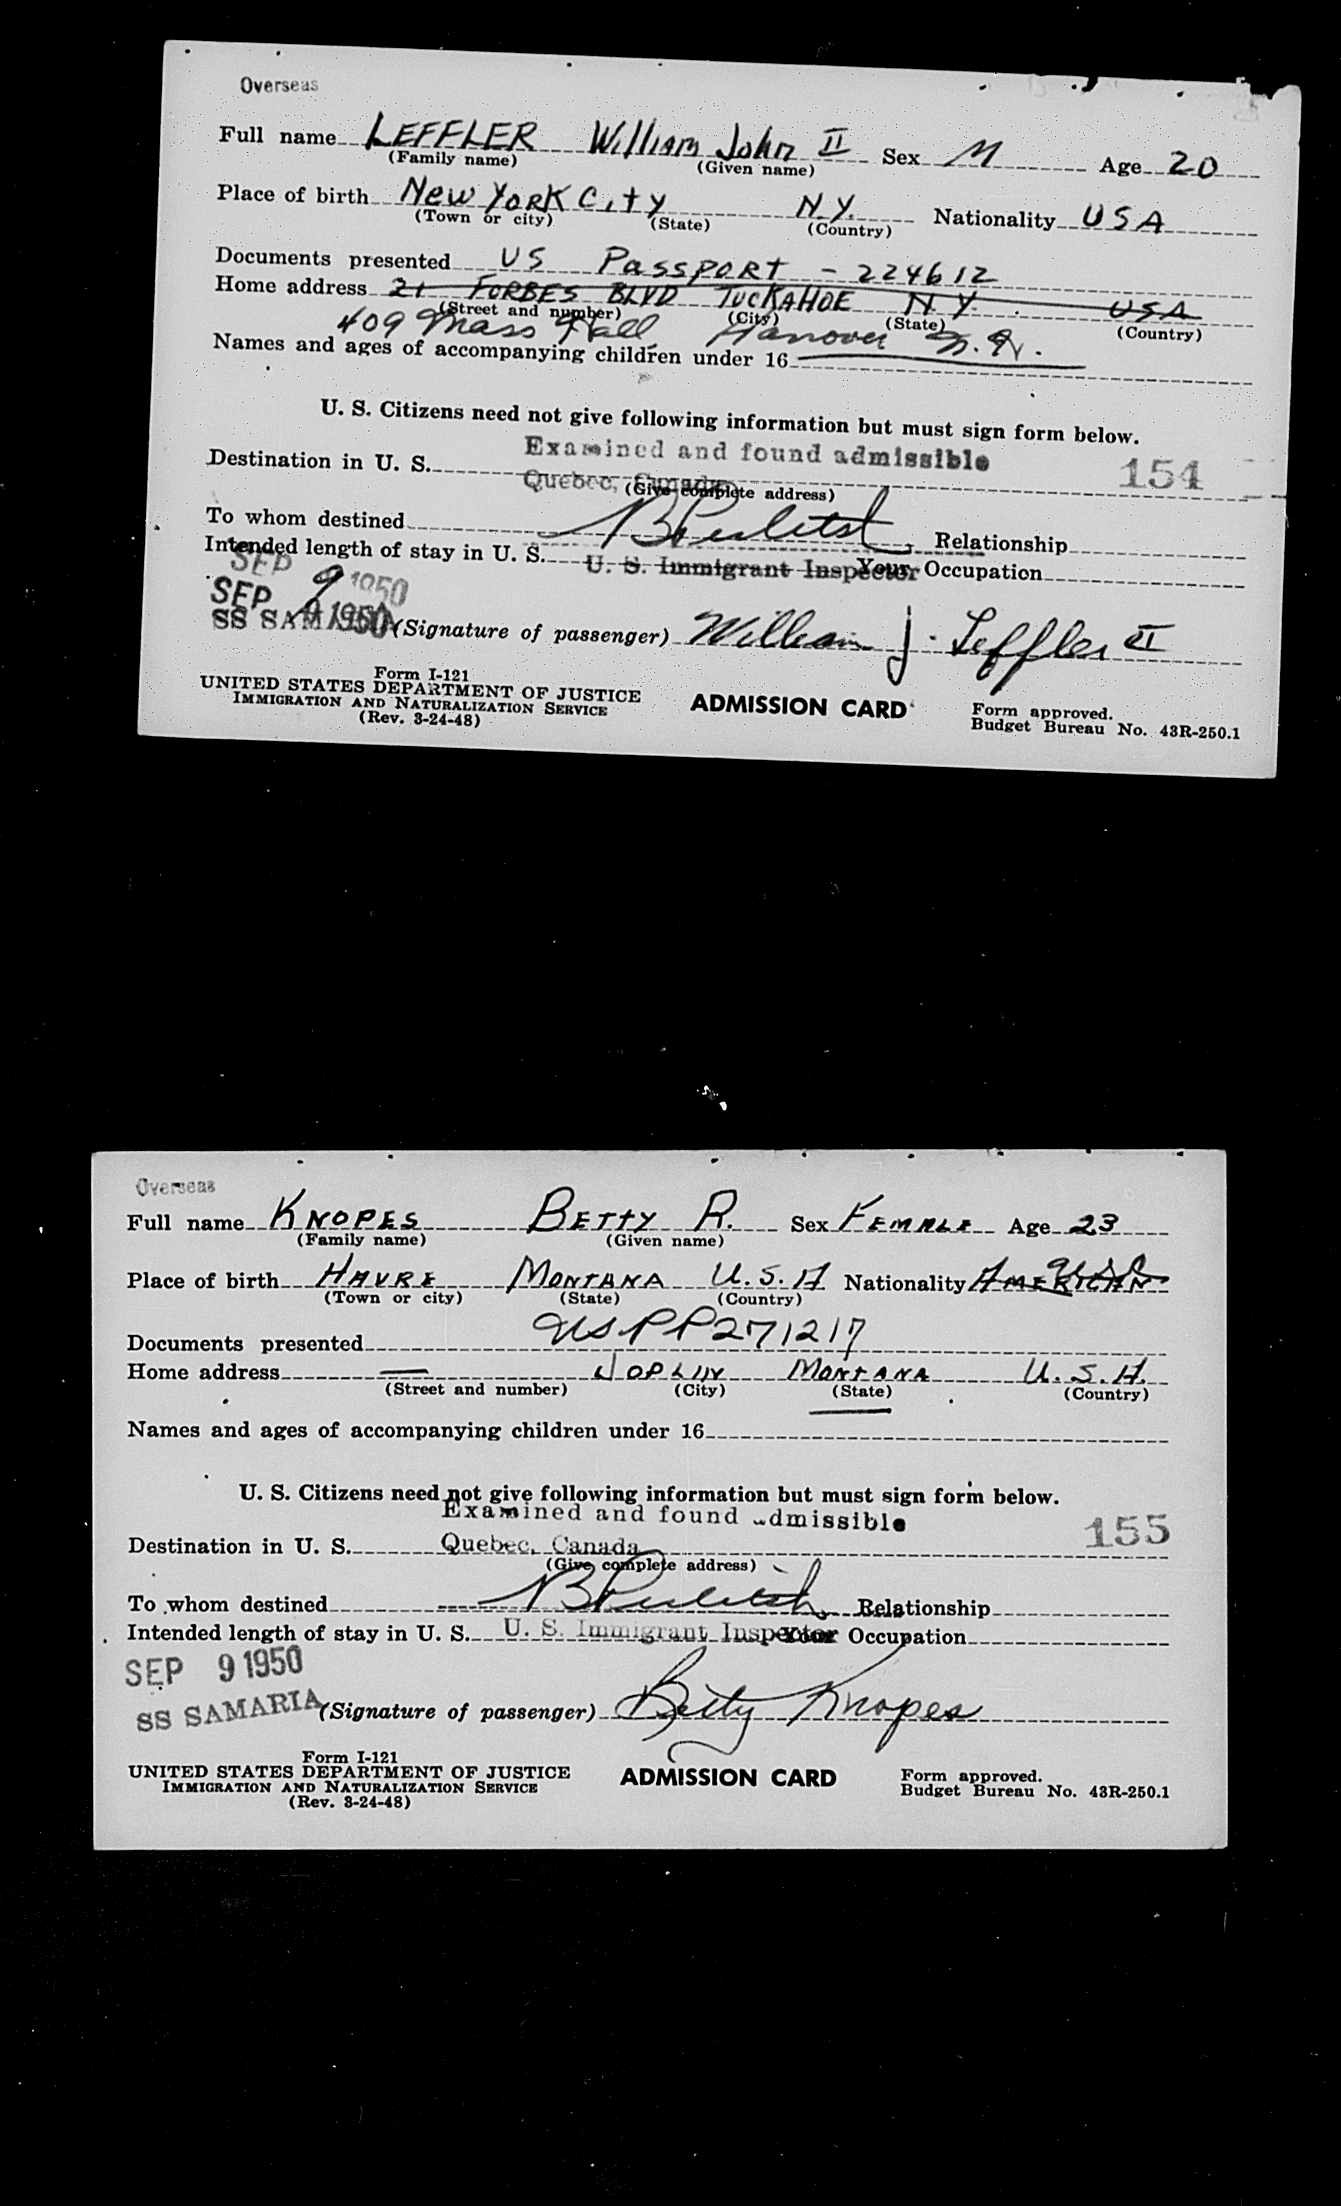 Overseas
Full name LEFFLER William John II Sex M Age 20
(Family name) (Given name)
Place of birth New York City N.Y. Nationality USA
(Town or city) (State) (Country)
Documents presented US Passport - 224612
Home address 21 FORBES BLVD TUCKAHOE N Y. USA
(Street and number) (City) (State) (Country)
409 Mass Hall Hanover N.H.
Names and ages of accompanying children under 16
U. S. Citizens need not give following information but must sign form below.
Examined and found admissible
Destination in U. S. 154
Quebec, Canada (Give complete address)
To whom destined Relationship
Intended length of stay in U. S. U. S. Immigrant Inspector Your Occupation
SEP 9 1950
SEP 9 1950
SS SAMARIA (Signature of passenger) William J. Leffler II
Form I-121
UNITED STATES DEPARTMENT OF JUSTICE
IMMIGRATION AND NATURALIZATION SERVICE
(Rev. 3-24-48)
ADMISSION CARD
Form approved.
Budget Bureau No. 43R-250.1
Overseas
Full name KNOPES BETTY R. Sex FEMALE Age 23
(Family name) (Given name)
Place of birth HAVRE MONTANA U.S.A Nationality AMERICAN USA
(Town or city) (State) (Country)
Documents presented USPP271217
Home address — JOPLIN MONTANA U.S.A.
(Street and number) (City) (State) (Country)
Names and ages of accompanying children under 16
U. S. Citizens need not give following information but must sign form below.
Examined and found admissible
Destination in U. S. Quebec, Canada 155
(Give complete address)
To whom destined Relationship
Intended length of stay in U. S. U. S. Immigrant Inspector Your Occupation
SEP 9 1950
SS SAMARIA (Signature of passenger) Betty Knopes
Form I-121
UNITED STATES DEPARTMENT OF JUSTICE
IMMIGRATION AND NATURALIZATION SERVICE
(Rev. 3-24-48)
ADMISSION CARD
Form approved.
Budget Bureau No. 43R-250.1